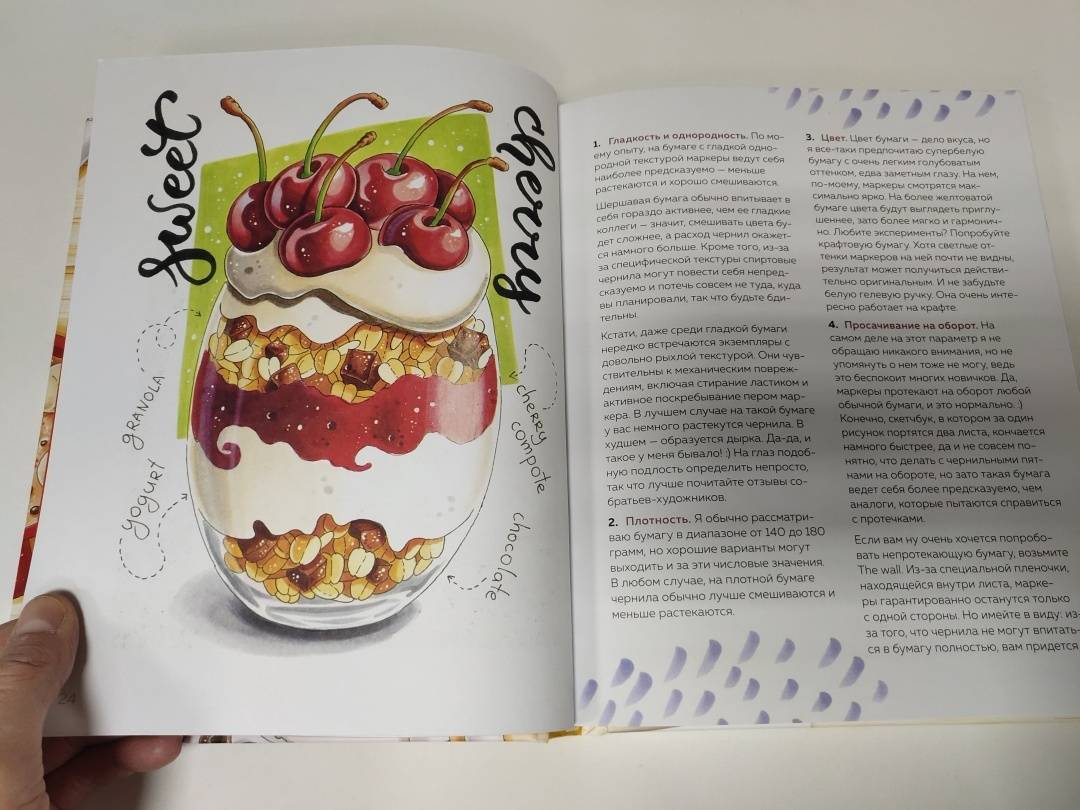 sweet
cherry
GRANOLA
yogurt
cherry
compote
chocolate
24
1. Гладкость и однородность. По мо-
ему опыту, на бумаге с гладкой одно-
родной текстурой маркеры ведут себя
наиболее предсказуемо — меньше
растекаются и хорошо смешиваются.
Шершавая бумага обычно впитывает в
себя гораздо активнее, чем ее гладкие
коллеги — значит, смешивать цвета бу-
дет сложнее, а расход чернил окажет-
ся намного больше. Кроме того, из-за
за специфической текстуры спиртовые
чернила могут повести себя непред-
сказуемо и потечь совсем не туда, куда
вы планировали, так что будьте бди-
тельны.
Кстати, даже среди гладкой бумаги
нередко встречаются экземпляры с
довольно рыхлой текстурой. Они чув-
ствительны к механическим повреж-
дениям, включая стирание ластиком и
активное поскребывание пером мар-
кера. В лучшем случае на такой бумаге
у вас немного растекутся чернила. В
худшем — образуется дырка. Да-да, и
такое у меня бывало! :) На глаз подоб-
ную подлость определить непросто,
так что лучше почитайте отзывы со-
братьев-художников.
2. Плотность. Я обычно рассматри-
ваю бумагу в диапазоне от 140 до 180
грамм, но хорошие варианты могут
выходить и за эти числовые значения.
В любом случае, на плотной бумаге
чернила обычно лучше смешиваются и
меньше растекаются.
3. Цвет. Цвет бумаги — дело вкуса, но
я все-таки предпочитаю супербелую
бумагу с очень легким голубоватым
оттенком, едва заметным глазу. На нем,
по-моему, маркеры смотрятся мак-
симально ярко. На более желтоватой
бумаге цвета будут выглядеть приглу-
шеннее, зато более мягко и гармонич-
но. Любите эксперименты? Попробуйте
крафтовую бумагу. Хотя светлые от-
тенки маркеров на ней почти не видны,
результат может получиться действи-
тельно оригинальным. И не забудьте
белую гелевую ручку. Она очень инте-
ресно работает на крафте.
4. Просачивание на оборот. На
самом деле на этот параметр я не
обращаю никакого внимания, но не
упомянуть о нем тоже не могу, ведь
это беспокоит многих новичков. Да,
маркеры протекают на оборот любой
обычной бумаги, и это нормально. :)
Конечно, скетчбук, в котором за один
рисунок портятся два листа, кончается
намного быстрее, да и не совсем по-
нятно, что делать с чернильными пят-
нами на обороте, но зато такая бумага
ведет себя более предсказуемо, чем
аналоги, которые пытаются справиться
с протечками.
Если вам ну очень хочется попробо-
вать непротекающую бумагу, возьмите
The wall. Из-за специальной пленочки,
находящейся внутри листа, марке-
ры гарантированно останутся только
с одной стороны. Но имейте в виду: из-
за того, что чернила не могут впитать-
ся в бумагу полностью, вам придется